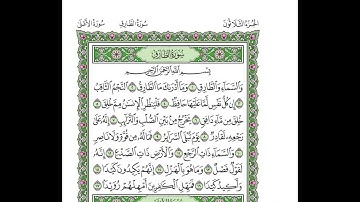 سُورَةُ الأَعْلَى سُورَةُ الطَّارِقِ الجُزْءُ الثَّلَاثُونَ
سُورَةُ الطَّارِقِ
بِسْمِ اللَّهِ الرَّحْمَٰنِ الرَّحِيمِ
وَالسَّمَاءِ وَالطَّارِقِ ۝ وَمَا أَدْرَىٰكَ مَا الطَّارِقُ ۝ النَّجْمُ الثَّاقِبُ
۝ إِن كُلُّ نَفْسٍ لَّمَّا عَلَيْهَا حَافِظٌ ۝ فَلْيَنظُرِ الْإِنسَٰنُ مِمَّ خُلِقَ
۝ خُلِقَ مِن مَّاءٍ دَافِقٍ ۝ يَخْرُجُ مِن بَيْنِ الصُّلْبِ وَالتَّرَائِبِ ۝ إِنَّهُ عَلَىٰ
رَجْعِهِ لَقَادِرٌ ۝ يَوْمَ تُبْلَى السَّرَائِرُ ۝ فَمَا لَهُ مِن قُوَّةٍ وَلَا نَاصِرٍ
۝ وَالسَّمَاءِ ذَاتِ الرَّجْعِ ۝ وَالْأَرْضِ ذَاتِ الصَّدْعِ ۝ إِنَّهُ
لَقَوْلٌ فَصْلٌ ۝ وَمَا هُوَ بِالْهَزْلِ ۝ إِنَّهُمْ يَكِيدُونَ كَيْدًا ۝
وَأَكِيدُ كَيْدًا ۝ فَمَهِّلِ الْكَٰفِرِينَ أَمْهِلْهُمْ رُوَيْدًا ۝